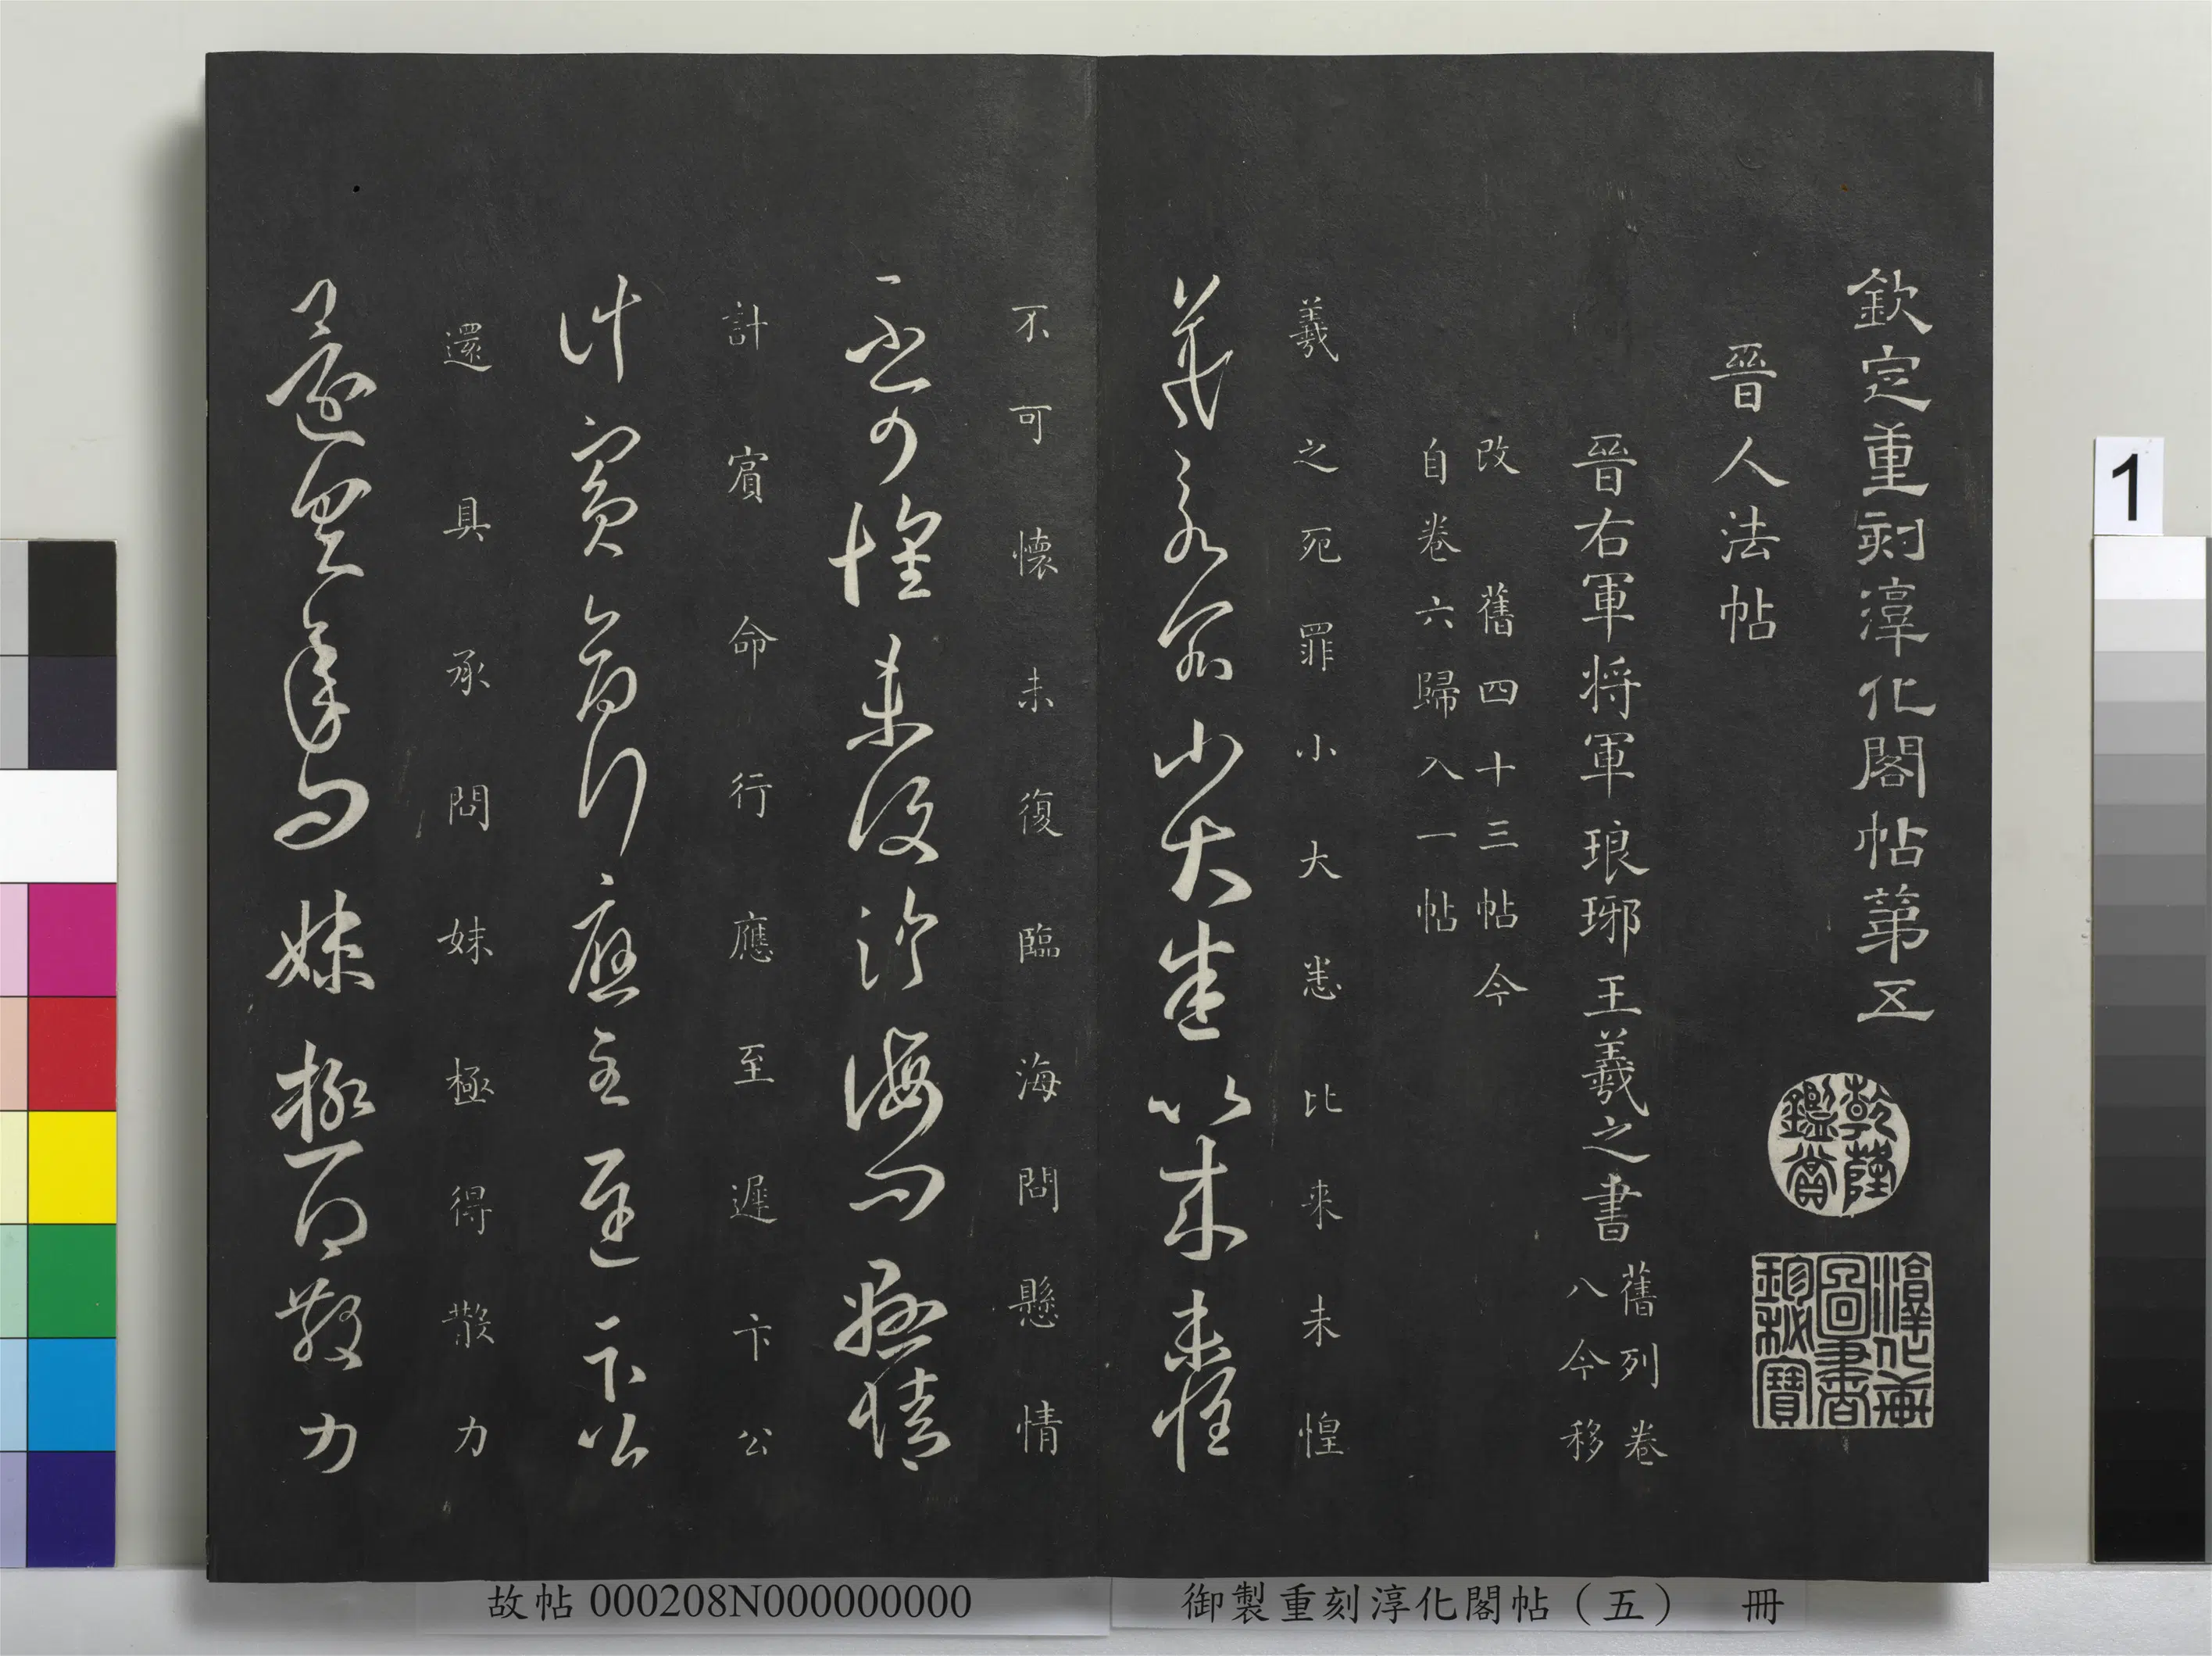 欽定重刻淳化閣帖第五
乾隆
鑑賞
淳化軒
圖書
珍秘寶
晉人法帖
晉右軍將軍琅琊王羲之書
舊列卷
八今移
改舊四十三帖今
自卷六歸入一帖
羲之死罪小大悉比来未惶
羲之死罪小大悉比来未惶
不可懷未復臨海問懸情
不可懷未復臨海問懸情
計賔命行應至遲卞公
計賔命行應至遲卞公
還具承問妹極得散力
還具承問妹極得散力
1
故帖 000208N000000000
御製重刻淳化閣帖（五） 冊